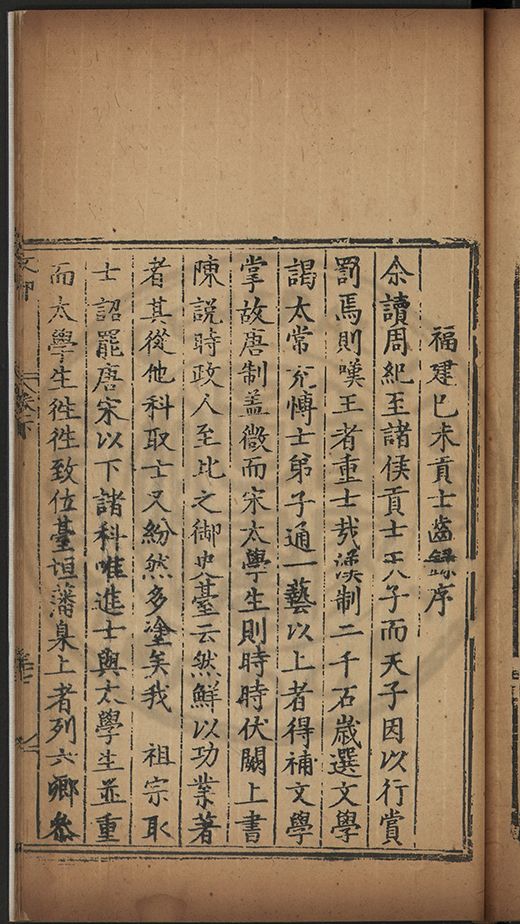 福建己未貢士齒錄序
余讀周紀至諸侯貢士于天子而天子因以行賞
罰焉則嘆王者重士㢤漢制二千石歲選文學
謁太常充愽士弟子通一藝以上者得補文學
掌故唐制盖微而宋太學生則時時伏闕上書
陳說時政人至比之御史臺云然鮮以功業著
者其從他科取士又紛然多塗矣我 祖宗取
士詔罷唐宋以下諸科唯進士與太學生並重
而太學生徃徃致位臺垣藩臬上者列六卿叅